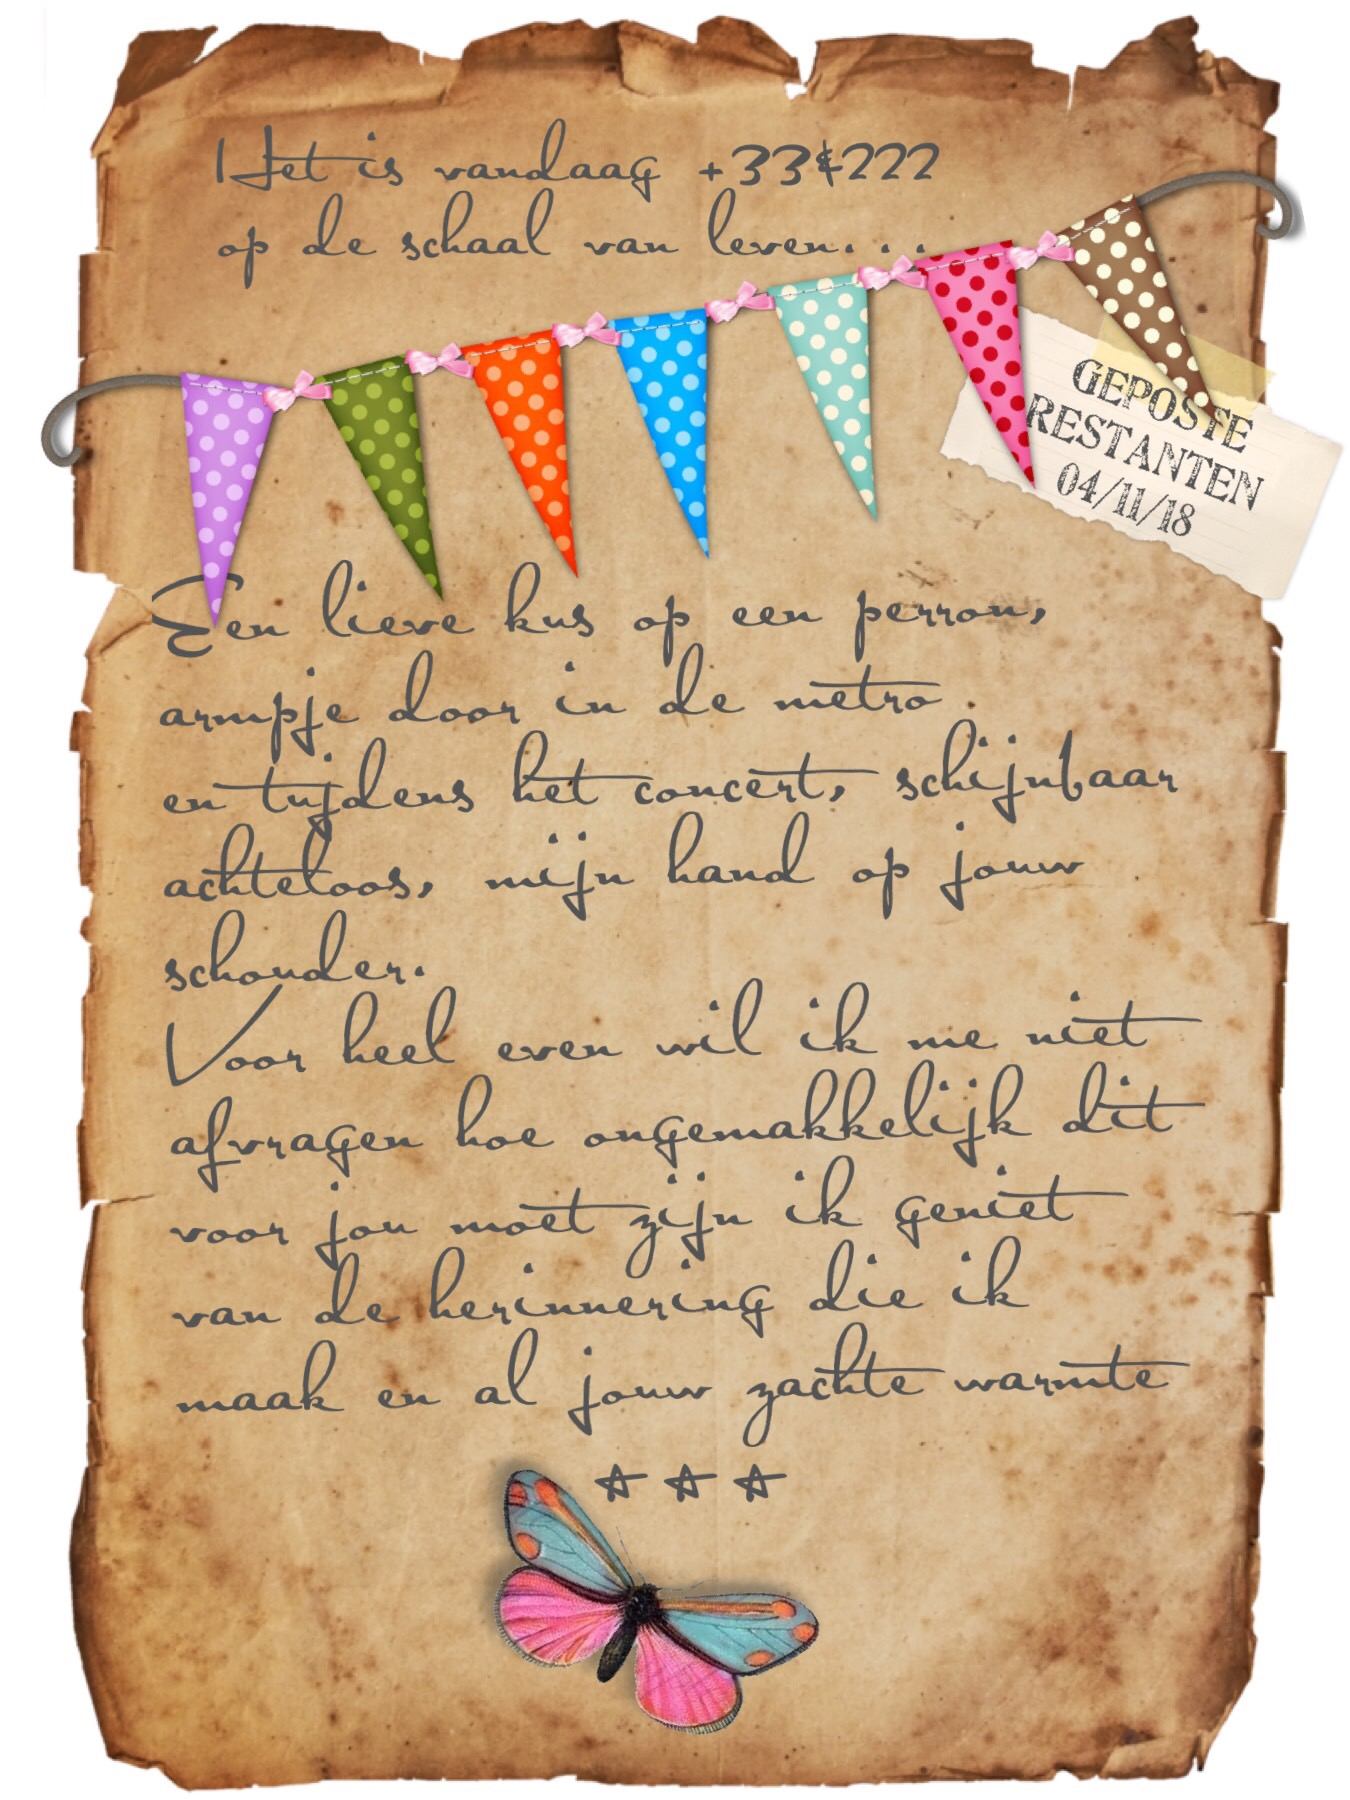 Het is vandaag +33&222
op de schaal van leven...
GEPOSTE
RESTANTEN
04/11/18
Een lieve kus op een perron,
armpje door in de metro .
en tijdens het concert, schijnbaar
achteloos, mijn hand op jouw
schouder.
Voor heel even wil ik me niet
afvragen hoe ongemakkelijk dit
voor jou moet zijn ik geniet
van de herinnering die ik
maak en al jouw zachte warmte
***